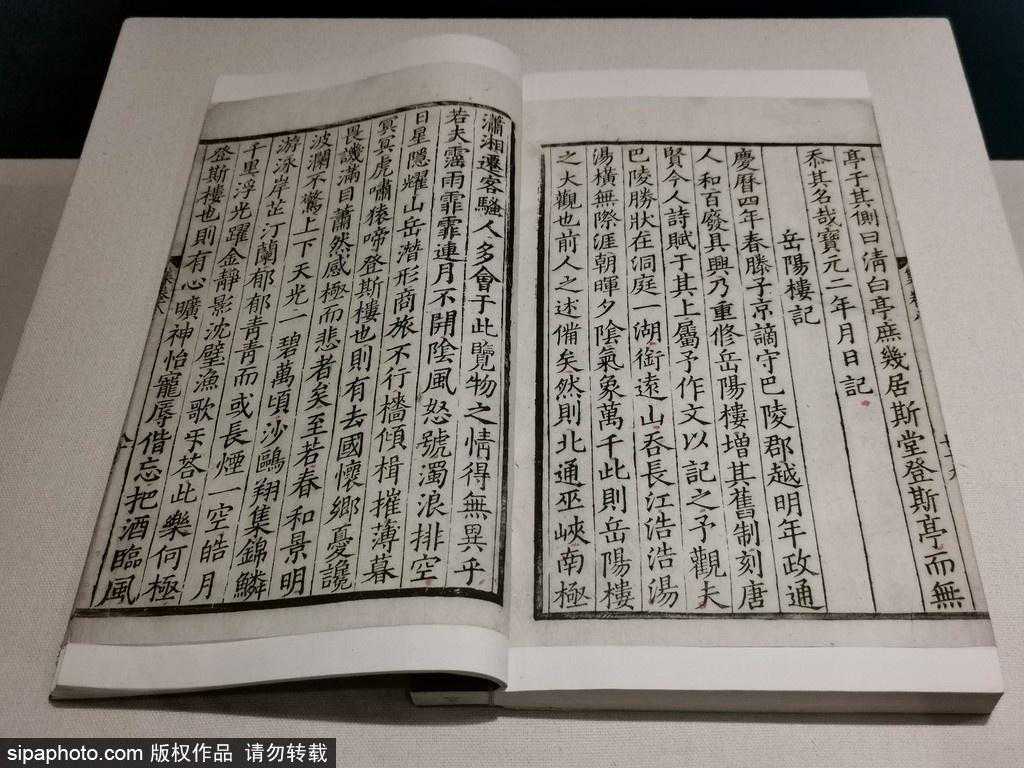 亭于其側曰清白亭庶幾居斯堂登斯亭而無
忝其名哉寶元二年月日記
岳陽樓記
慶曆四年春滕子京謫守巴陵郡越明年政通
人和百廢具興乃重修岳陽樓增其舊制刻唐
賢今人詩賦于其上屬予作文以記之予觀夫
巴陵勝狀在洞庭一湖銜遠山吞長江浩浩湯
湯橫無際涯朝暉夕陰氣象萬千此則岳陽樓
之大觀也前人之述備矣然則北通巫峽南極
瀟湘遷客騷人多會于此覽物之情得無異乎
若夫霪雨霏霏連月不開陰風怒號濁浪排空
日星隱耀山岳潛形商旅不行檣傾楫摧薄暮
冥冥虎嘯猿啼登斯樓也則有去國懷鄉憂讒
畏譏滿目蕭然感極而悲者矣至若春和景明
波瀾不驚上下天光一碧萬頃沙鷗翔集錦鱗
游泳岸芷汀蘭郁郁青青而或長煙一空皓月
千里浮光躍金靜影沈璧漁歌互荅此樂何極
登斯樓也則有心曠神怡寵辱偕忘把酒臨風
sipaphoto.com 版权作品 请勿转载